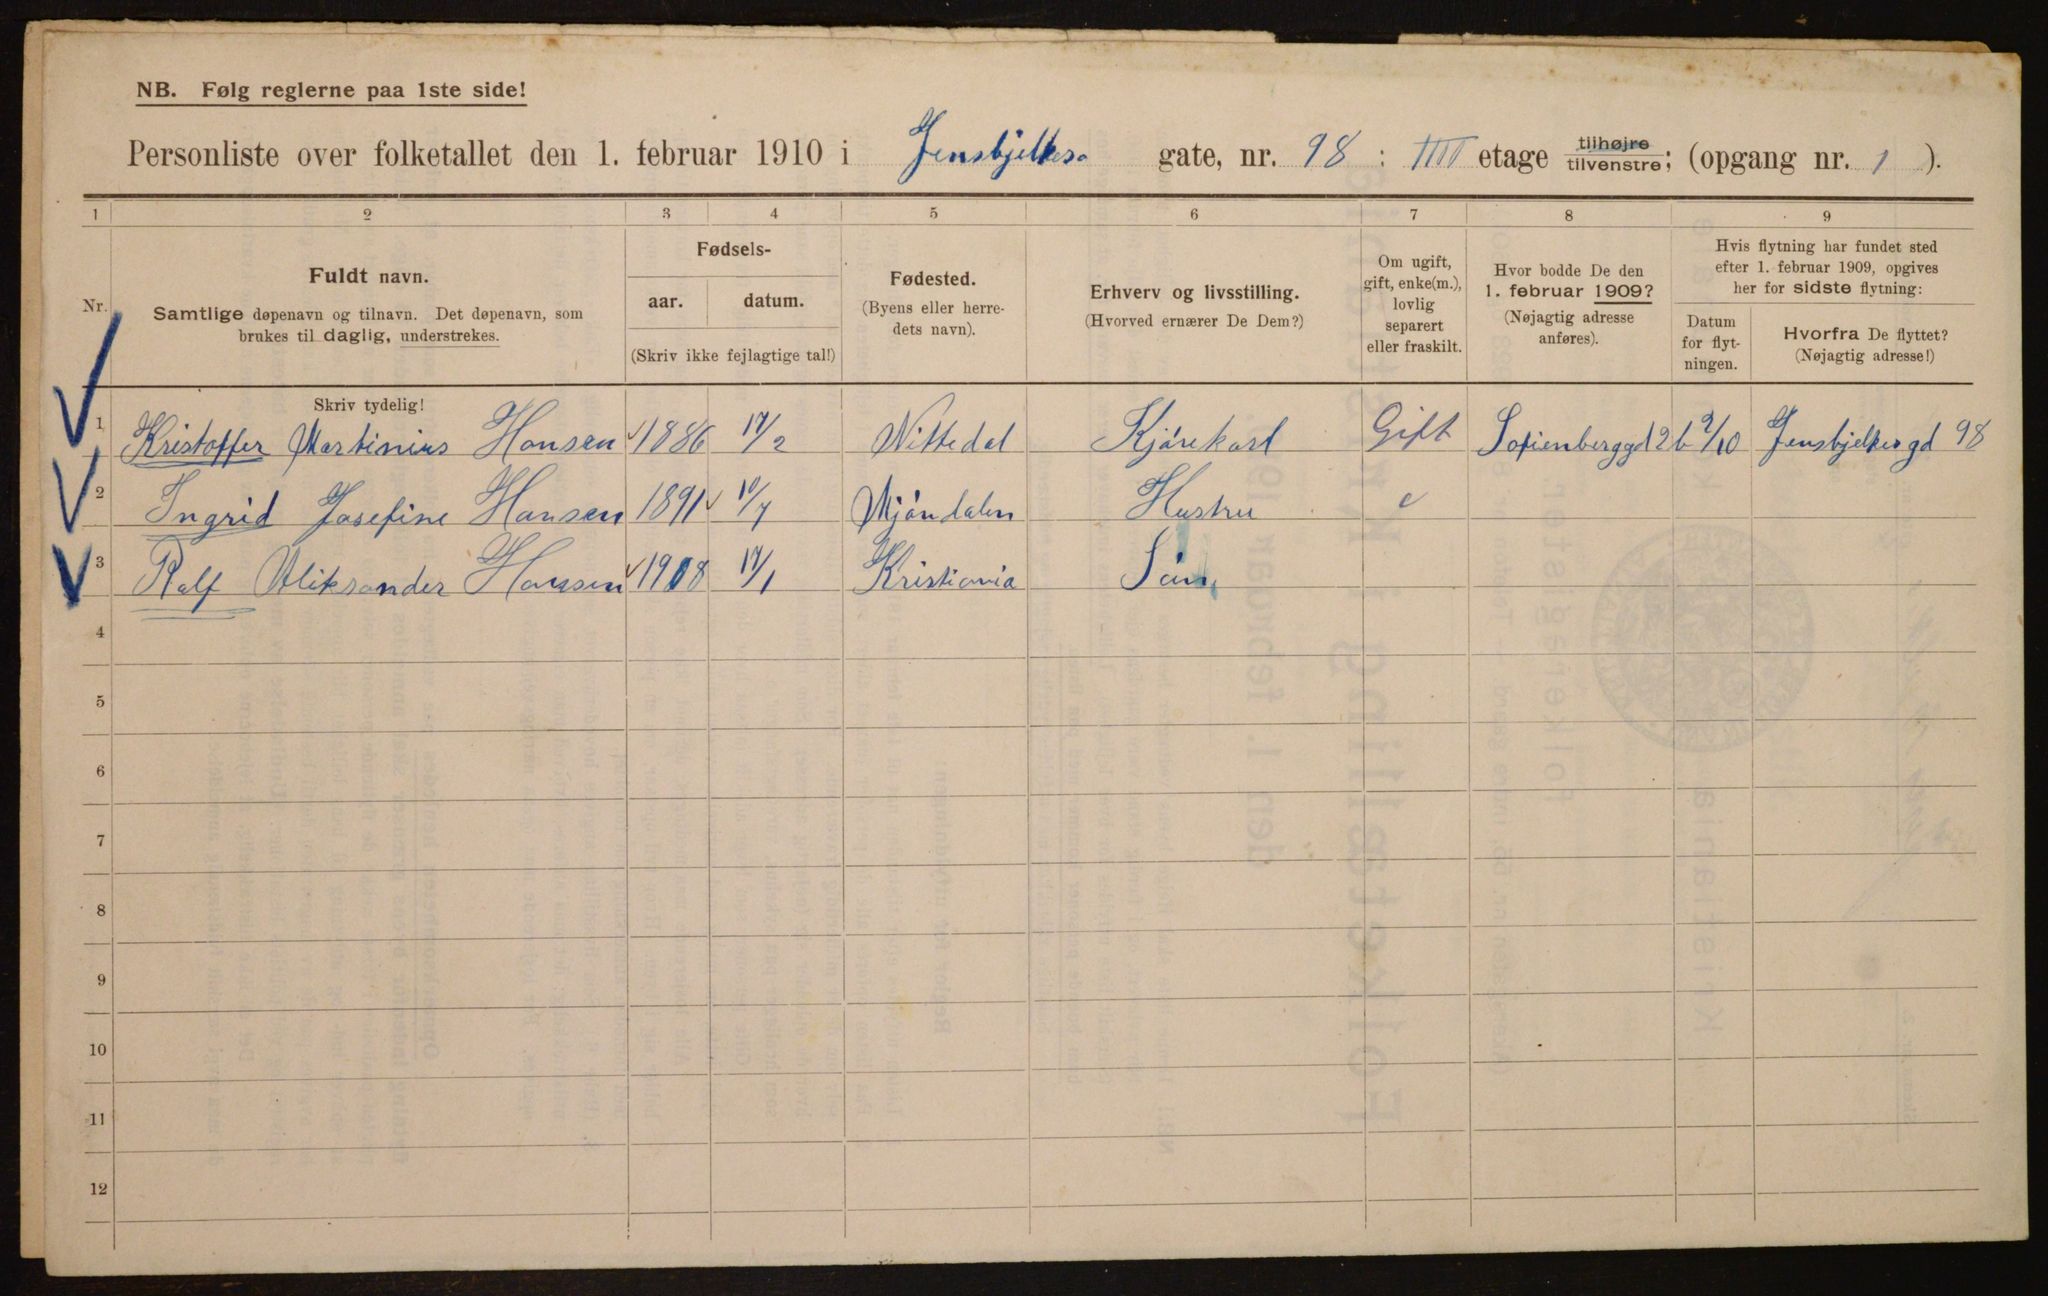 NB. Følg reglerne paa 1ste side!
Personliste over folketallet den 1. februar 1910 i Jensbjelkes gate, nr. 98 : IIII etage tilhøjre tilvenstre; (opgang nr. 1 ).
1 2 3 4 5 6 7 8 9
Nr.
Fuldt navn.
Samtlige døpenavn og tilnavn. Det døpenavn, som
brukes til daglig, understrekes.
Skriv tydelig!
Fødsels-
aar. datum.
(Skriv ikke fejlagtige tal!)
Fødested.
(Byens eller herre-
dets navn).
Erhverv og livsstilling.
(Hvorved ernærer De Dem?)
Om ugift,
gift, enke(m.),
lovlig
separert
eller fraskilt.
Hvor bodde De den
1. februar 1909?
(Nøjagtig adresse
anføres).
Hvis flytning har fundet sted
efter 1. februar 1909, opgives
her for sidste flytning:
Datum
for flyt-
ningen.
Hvorfra De flyttet?
(Nøjagtig adresse!)
1 Kristoffer Martinius Hansen 1886 17/2 Nittedal Kjørekarl Gift Sofienberggd 2b 9/10 Jensbjelkesgd 98
2 Ingrid Josefine Hansen 1891 10/7 Mjöndalen Hustru
3 Ralf Aleksander Hansen 1908 17/1 Kristiania Sön
4
5
6
7
8
9
10
11
12